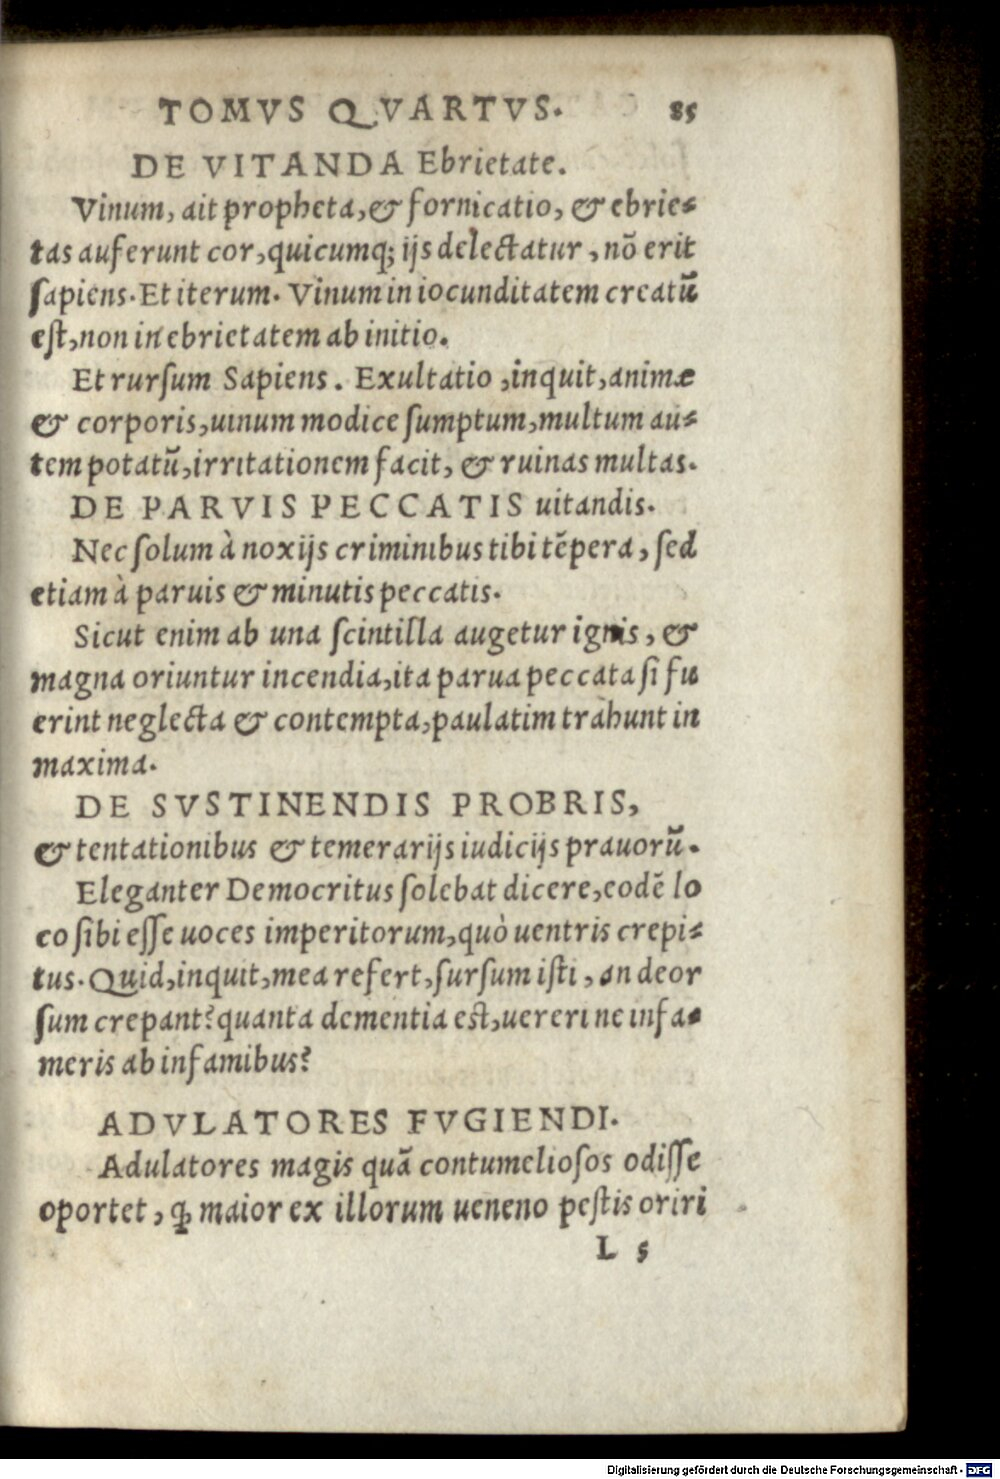 TOMVS QVARTVS. 85
DE VITANDA Ebrietate.
Vinum, ait propheta, & fornicatio, & ebrie-
tas auferunt cor, quicumq; ijs delectatur, nō erit
ſapiens. Et iterum. Vinum in iocunditatem creatū
eſt, non in ebrietatem ab initio.
Et rurſum Sapiens. Exultatio, inquit, animæ
& corporis, uinum modice ſumptum, multum au-
tem potatū, irritationem facit, & ruinas multas.
DE PARVIS PECCATIS uitandis.
Nec ſolum à noxijs criminibus tibi tēpera, ſed
etiam à paruis & minutis peccatis.
Sicut enim ab una ſcintilla augetur ignis, &
magna oriuntur incendia, ita parua peccata ſi fu
erint neglecta & contempta, paulatim trahunt in
maxima.
DE SVSTINENDIS PROBRIS,
& tentationibus & temerarijs iudicijs prauorū.
Eleganter Democritus ſolebat dicere, eodē lo
co ſibi eſſe uoces imperitorum, quò uentris crepi-
tus. Quid, inquit, mea refert, ſurſum iſti, an deor
ſum crepant? quanta dementia eſt, uereri ne infa-
meris ab infamibus?
ADVLATORES FVGIENDI.
Adulatores magis quā contumelioſos odiſſe
oportet, ꝙ maior ex illorum ueneno peſtis oriri
L 5
Digitalisierung gefördert durch die Deutsche Forschungsgemeinschaft - DFG